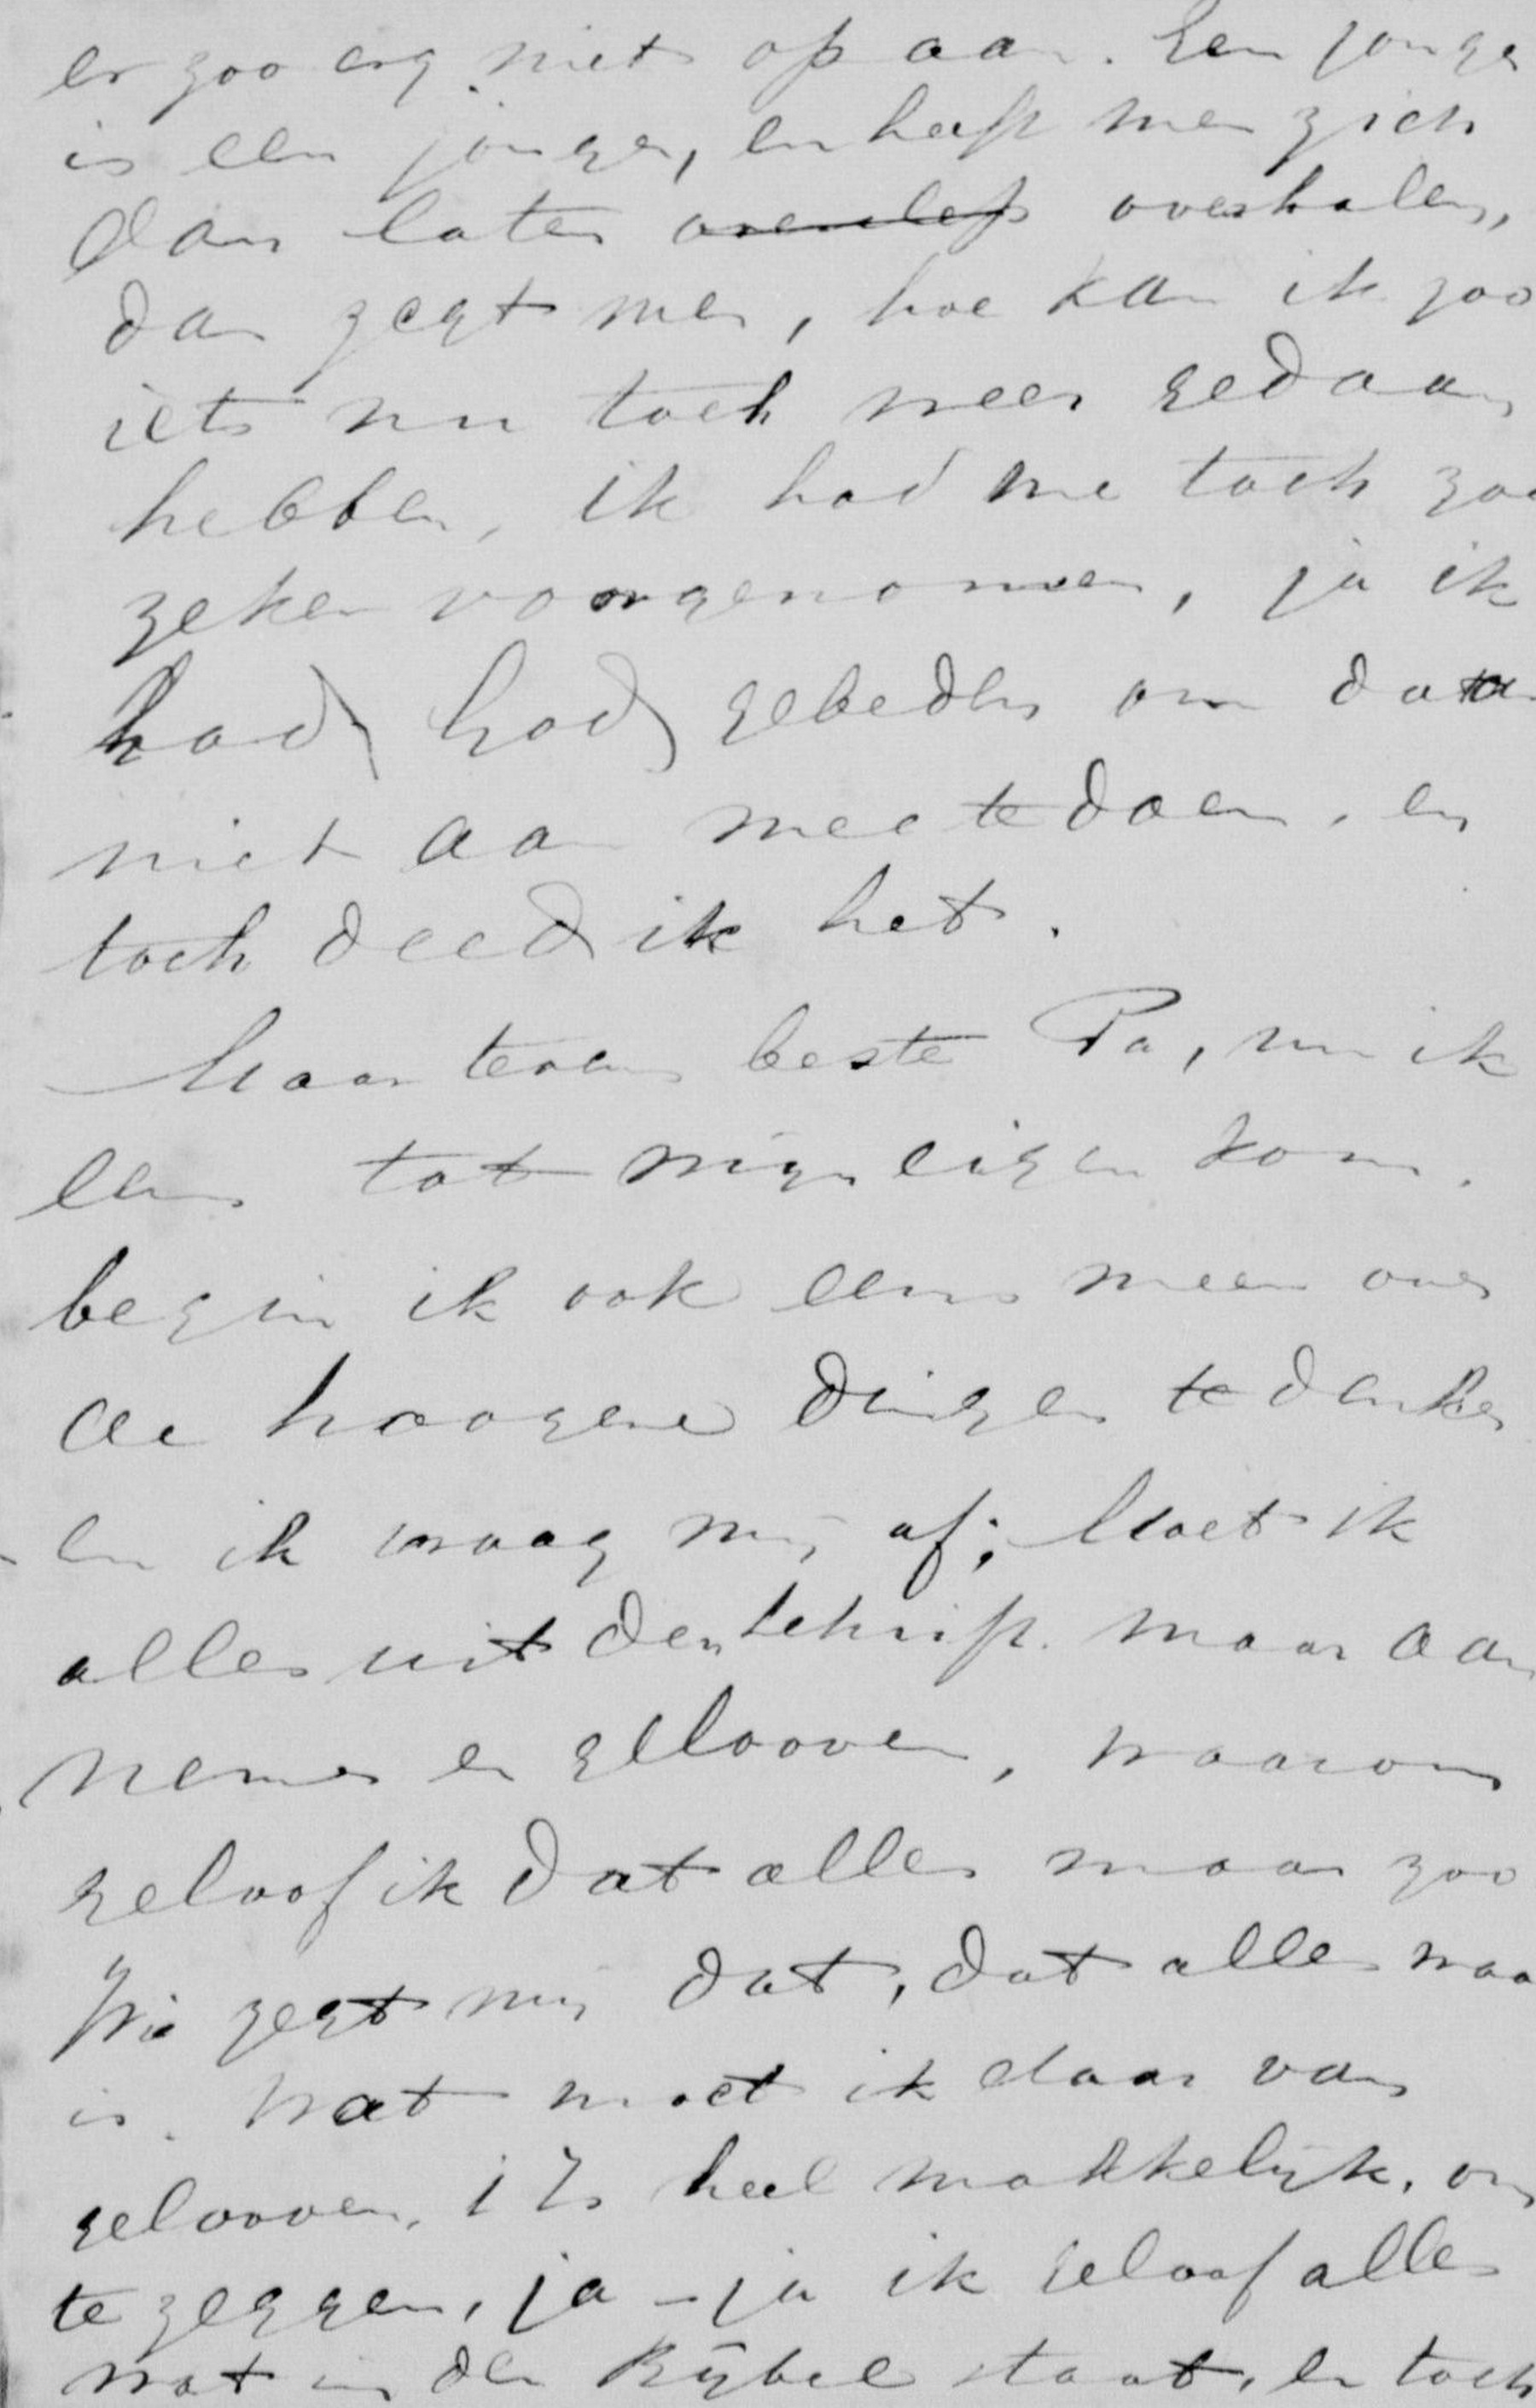 er zoo erg niet op aan. Een jongen
is een jongen, en heeft men zich
dan laten overhalen,
dan zegt men, hoe kan ik zoo
iets nu toch weer gedaan
hebben, ik had me toch zoo
zeker voorgenomen, ja ik
had God gebeden om daar
niet aan mee te doen, en
toch deed ik het.
Maar beste Pa, nu ik
eens tot mijn eigen kom,
begin ik ook eens meer over
de hoogere dingen te denken
en ik vraag mij af; Moet ik
alles uit den schrift maar aan
nemen en gelooven, waarom
geloof ik dat alles maar zoo
Wie zegt mij dat, dat alles waar
is. Wat moet ik daar van
gelooven, 't Is heel makkelijk, om
te zeggen, ja - ja ik geloof alles
wat in den Bijbel staat, en toch